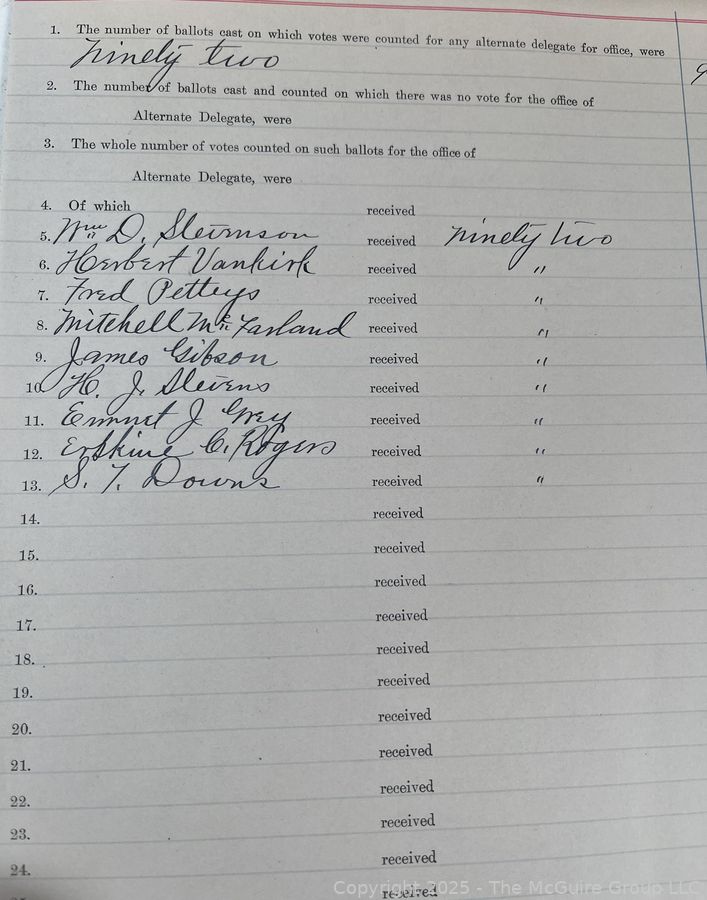 1. The number of ballots cast on which votes were counted for any alternate delegate for office, were
ninety two
2. The number of ballots cast and counted on which there was no vote for the office of
Alternate Delegate, were
3. The whole number of votes counted on such ballots for the office of
Alternate Delegate, were
4. Of which received
5. Wm D. Stevenson received ninety two
6. Herbert Vankirk received "
7. Fred Petteys received "
8. Mitchell Mc Farland received "
9. James Gibson received "
10 H. J. Stevens received "
11. Emmet J Grey received "
12. Erskine C. Rogers received "
13. S. T. Downs received "
14. received
15. received
16. received
17. received
18. received
19. received
20. received
21. received
22. received
23. received
24. received
received
Copyright 2025 - The McGuire Group LLC